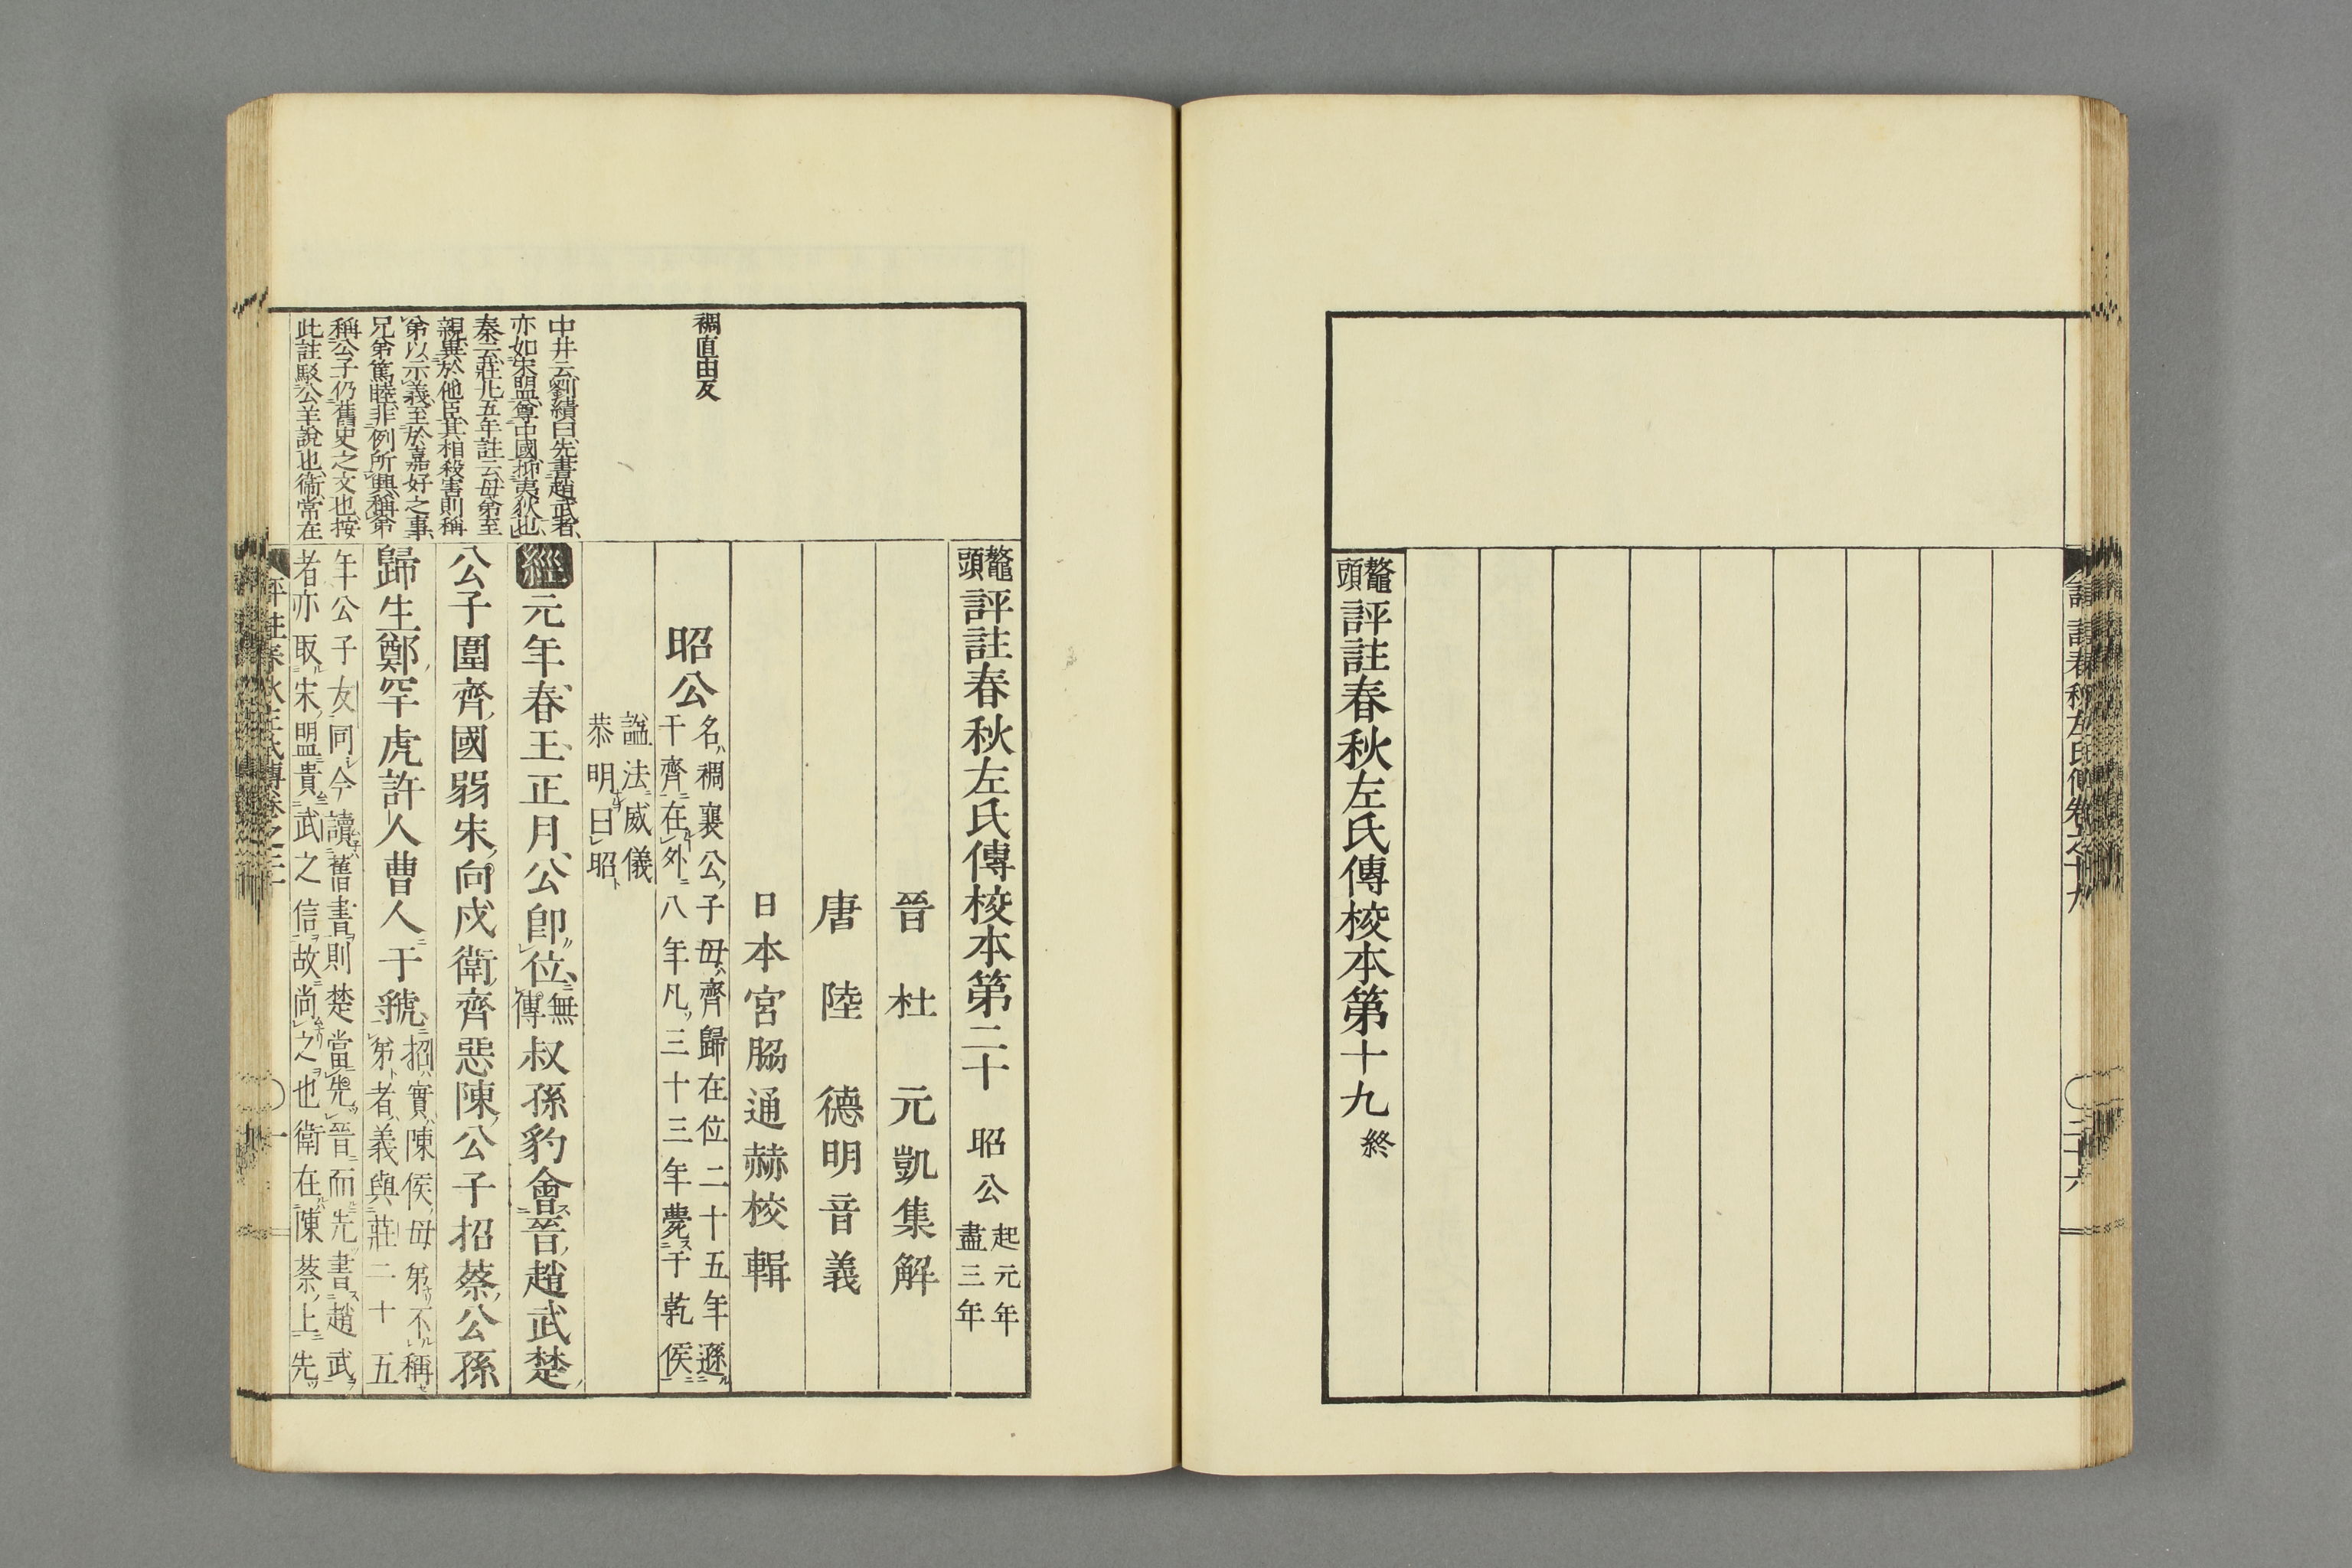 鼇頭評註春秋左氏傳校本第十九終
鼇頭評註春秋左氏傳校本第二十 昭公 起元年盡三年
晉 杜 元凱集解
唐 陸 德明音義
日本宮脇通赫校輯
昭公 名ハ稠襄公ノ子母ハ齊歸在位二十五年遜ル
于齊ニ在ルコト外ニ八年凡ソ三十三年薨ス于乾侯ニ
謚法ニ威儀
恭明ナルヲ曰昭ト
經元年春王正月公卽位無傳叔孫豹會晉趙武楚
公子圍齊國弱宋向戌衛齊惡陳公子招蔡公孫
歸生鄭罕虎許人曹人于虢招ハ實ハ陳侯ノ母弟不稱
弟ト者義與莊二十五
年公子友同今讀舊書則楚當先晉而先書趙武
者亦取宋盟貴武之信故尚之也衛在陳蔡上先
稠直由反
中井云劉績曰先書趙武者
亦如宋盟尊中國抑夷狄也
秦云莊廿五年註云母弟至
親異於他臣其相殺害則稱
弟以示義至於嘉好之事
兄弟篤睦非例所興稱弟
稱公子仍舊史之文也按
此註駁公羊說也衞常在
評註春秋左氏傳卷之二十
一